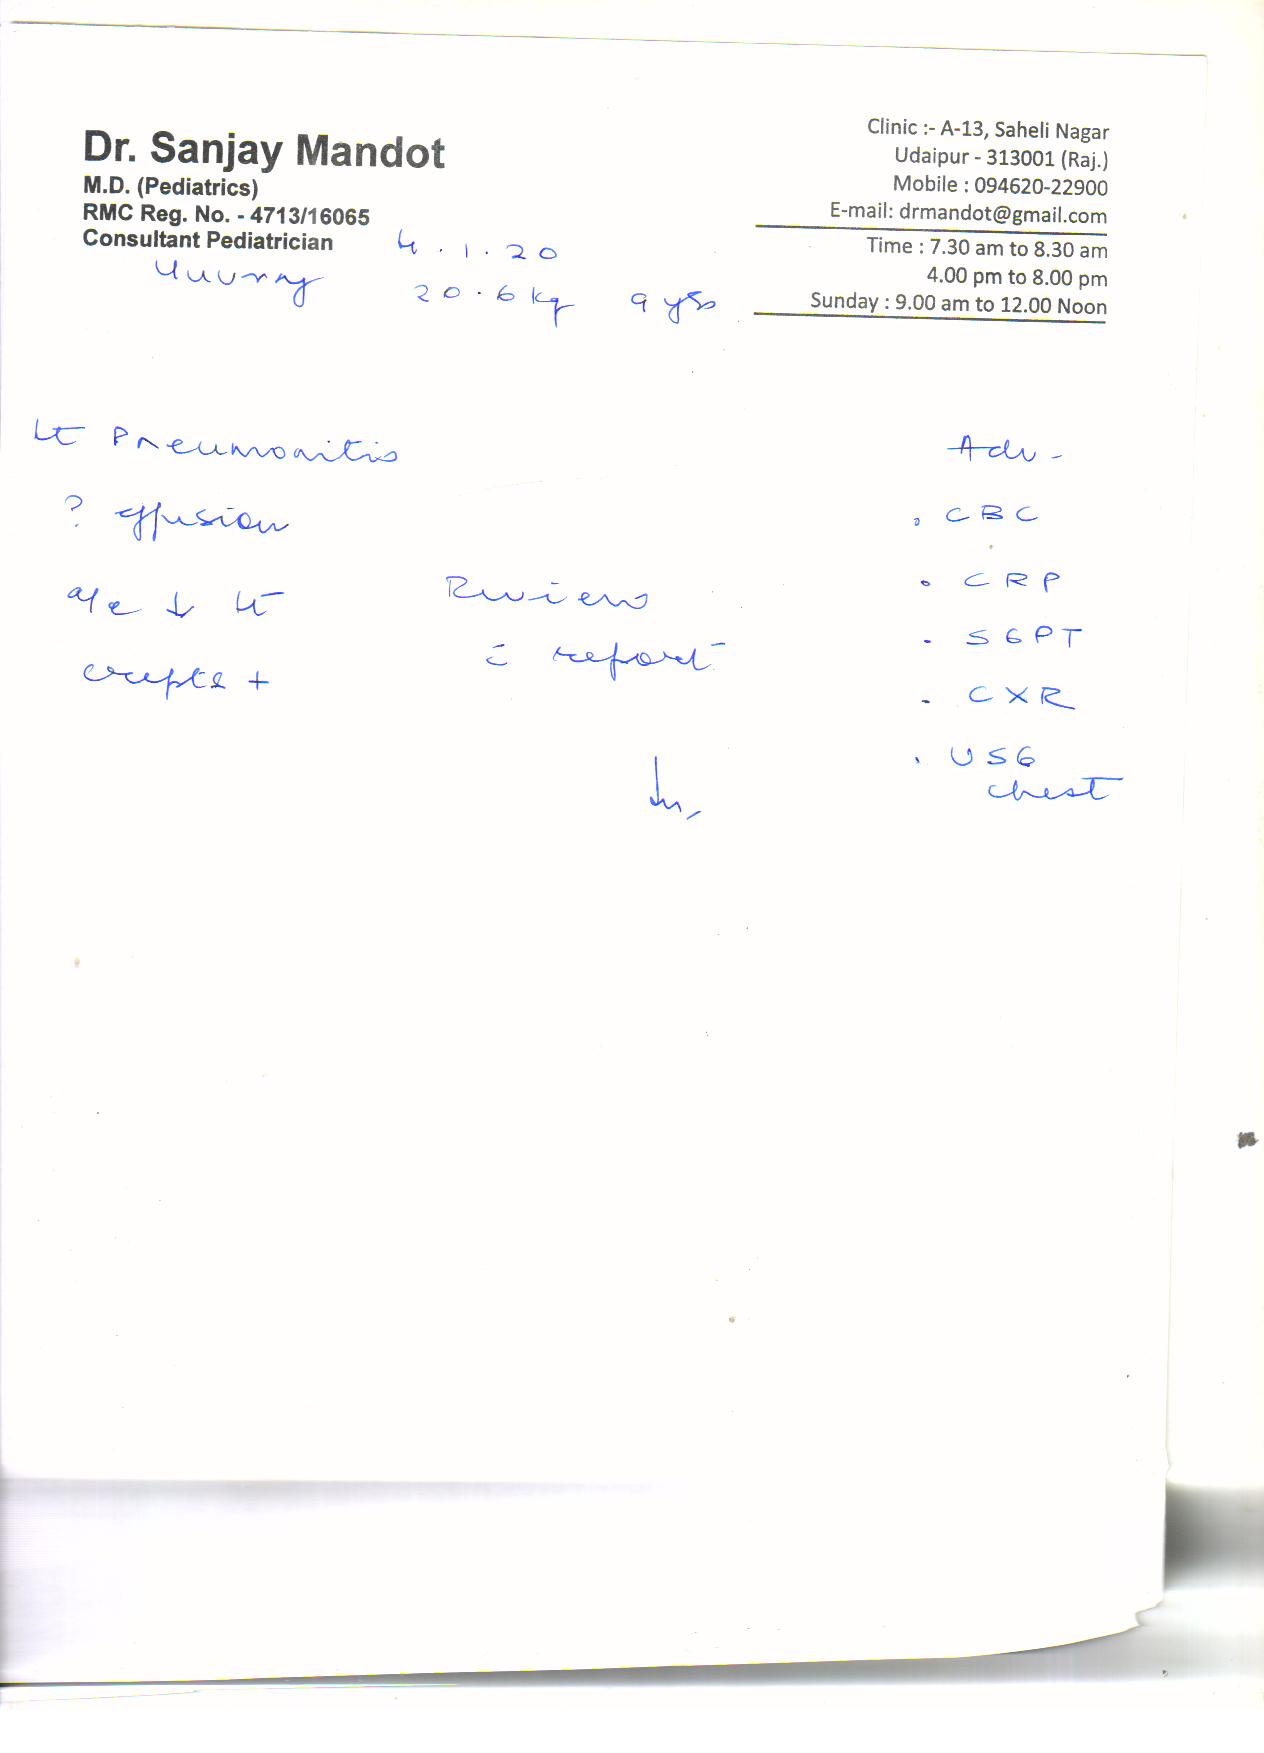 Dr. Sanjay Mandot
M.D. (Pediatrics)
RMC Reg. No. - 4713/16065
Consultant Pediatrician
Clinic :- A-13, Saheli Nagar
Udaipur - 313001 (Raj.)
Mobile : 094620-22900
E-mail: drmandot@gmail.com
Time : 7.30 am to 8.30 am
4.00 pm to 8.00 pm
Sunday : 9.00 am to 12.00 Noon
4.1.20
Yuvraj 20.6 kg 9 yrs
Lt Pneumonitis
? effusion
a/e ↓ Lt
crepts +
Review
c̄ report
Adv -
. CBC
. CRP
. SGPT
. CXR
. USG
chest